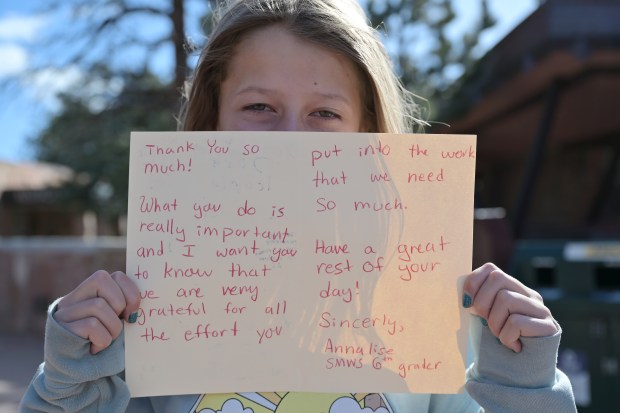 Thank You so
much!
What you do is
really important
and I want you
to know that
we are very
grateful for all
the effort you
put into the work
that we need
so much.
Have a great
rest of your
day!
Sincerely,
Annalise
SMWS 6th grader